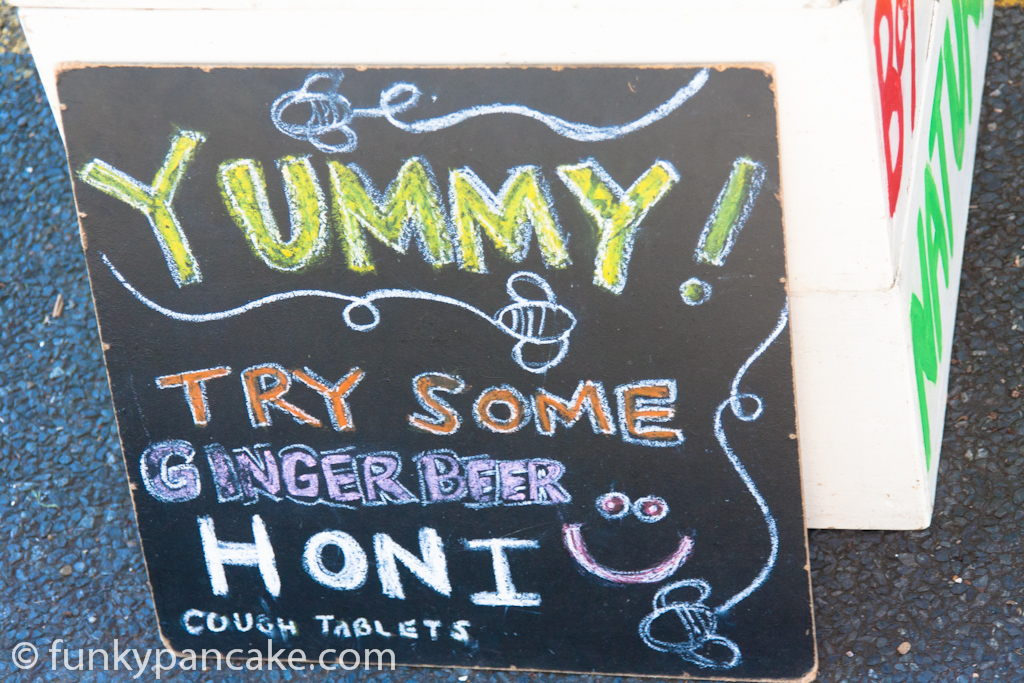 YUMMY!
TRY SOME
GINGER BEER
HONI
COUGH TABLETS
© funkypancake.com